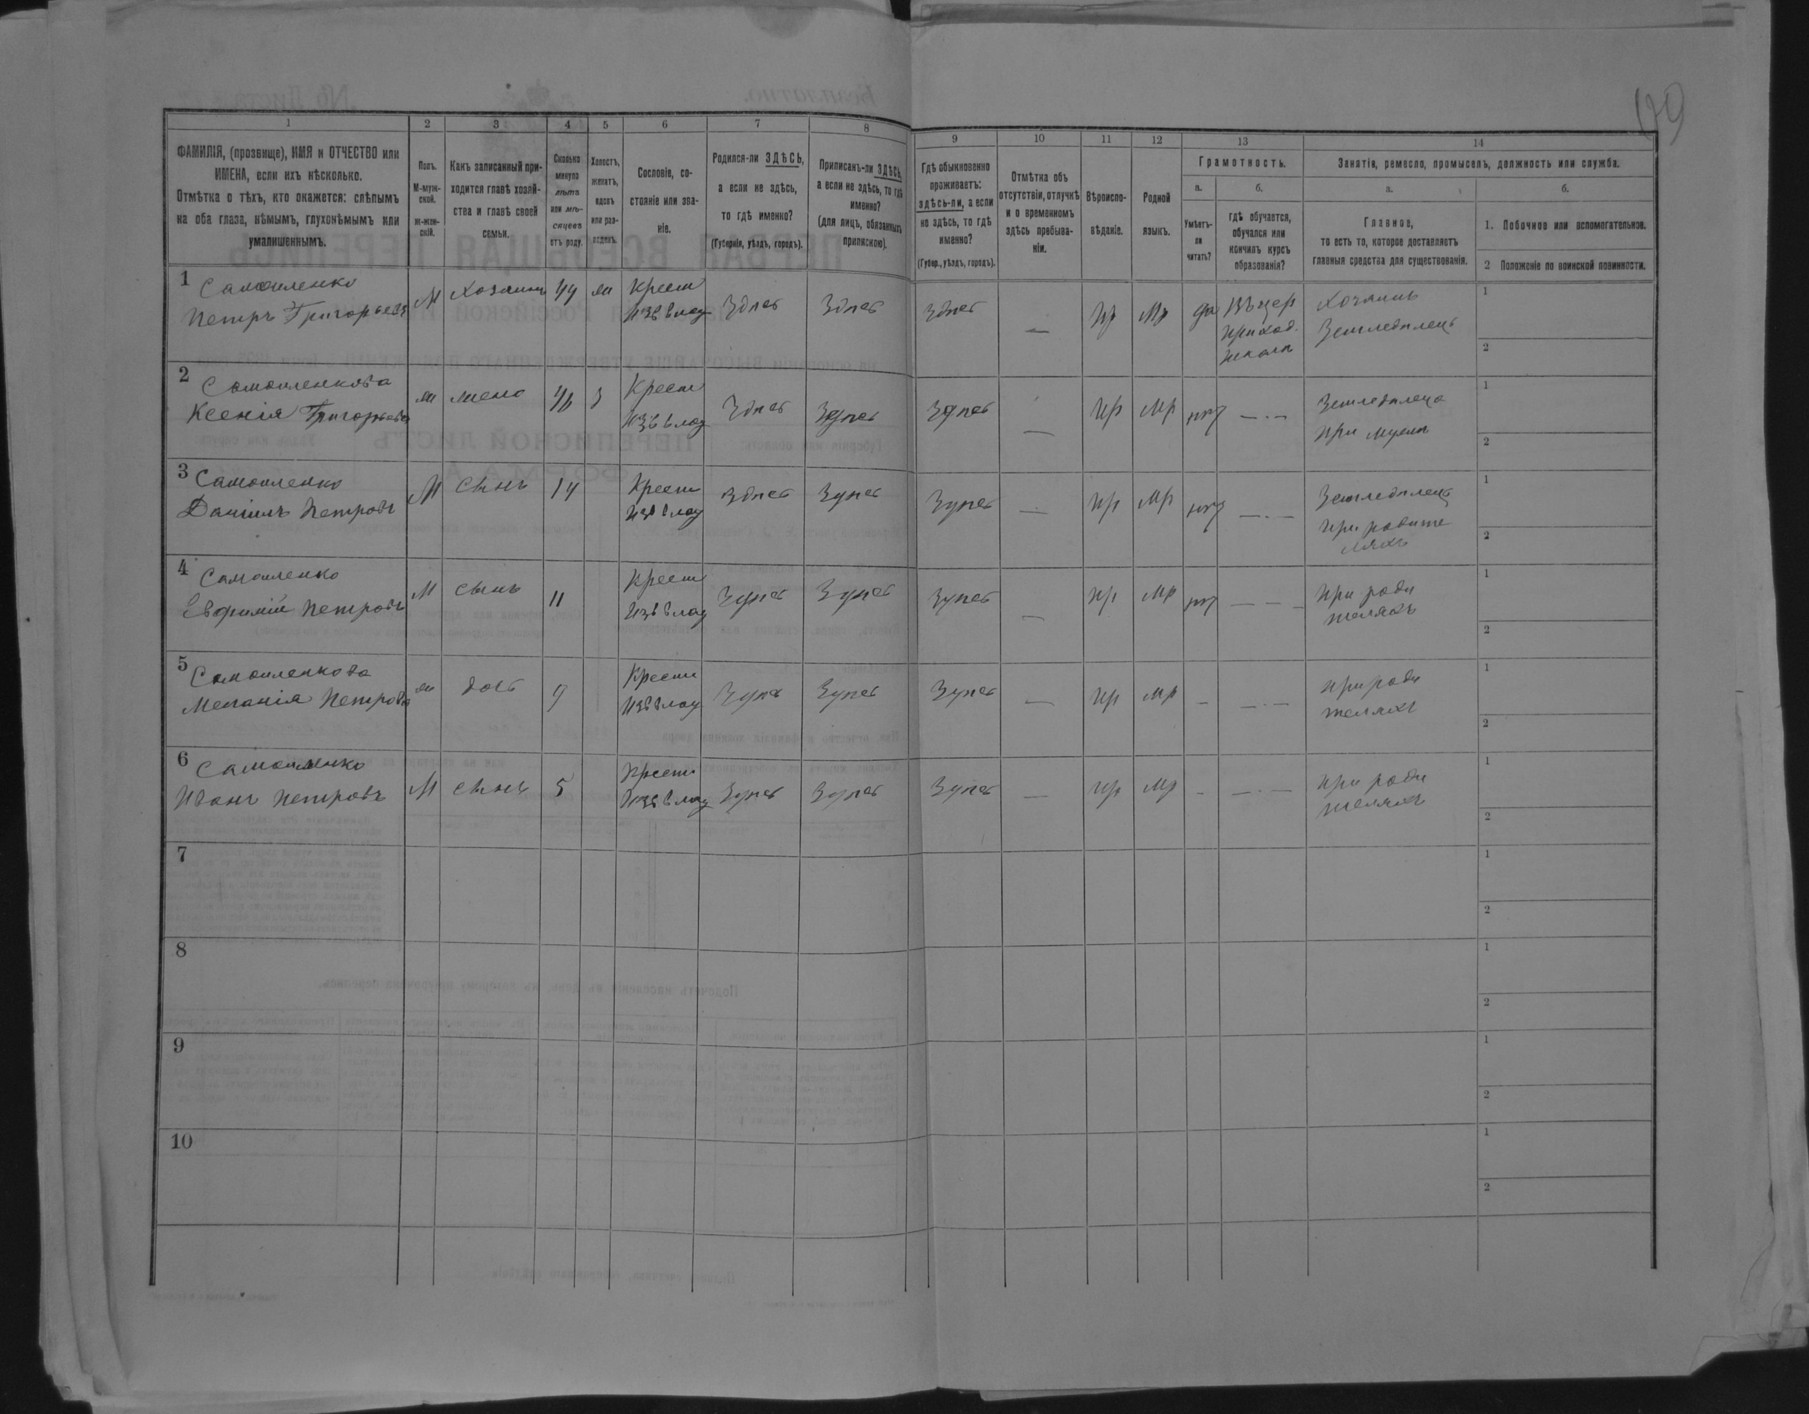 99
1 2 3 4 5 6 7 8 9 10 11 12 13 14
ФАМИЛІЯ, (прозвище), ИМЯ и ОТЧЕСТВО или
ИМЕНА, если ихъ нѣсколько.
Отмѣтка о тѣхъ, кто окажется: слѣпымъ
на оба глаза, нѣмымъ, глухонѣмымъ или
умалишеннымъ.
Полъ.
М-муж-
ской.
ж-жен-
скій.
Какъ записанный при-
ходится главѣ хозяй-
ства и главѣ своей
семьи.
Сколько
минуло
лѣтъ
или мѣ-
сяцевъ
отъ роду.
Холостъ,
женатъ,
вдовъ
или раз-
веденъ.
Сословіе, со-
стояніе или зва-
ніе.
Родился-ли ЗДѢСЬ,
а если не здѣсь,
то гдѣ именно?
(Губернія, уѣздъ, городъ).
Приписанъ-ли ЗДѢСЬ,
а если не здѣсь, то гдѣ
именно?
(для лицъ, обязанныхъ
припискою).
Гдѣ обыкновенно
проживаетъ:
здѣсь-ли, а если
не здѣсь, то гдѣ
именно?
(Губер., уѣздъ, городъ).
Отмѣтка объ
отсутствіи, отлучкѣ
и о временномъ
здѣсь пребыва-
ніи.
Вѣроиспо-
вѣданіе.
Родной
языкъ.
Грамотность.
а.
Умѣетъ-
ли
читать?
б.
гдѣ обучается,
обучался или
кончилъ курсъ
образованія?
Занятія, ремесло, промыселъ, должность или служба.
а.
Главное,
то есть то, которое доставляетъ
главныя средства для существованія.
б.
1. Побочное или вспомогательное.
2 Положеніе по воинской повинности.
1 Самоиленко
Петръ Григорьевъ
М Хозяинъ 44 ж Крест
Изъ влад Здѣсь Здѣсь Здѣсь — Пр Мр да Въ цер
приход.
школѣ Хозяинъ
Земледѣлецъ
1
2
2 Самоиленкова
Ксенія Григорьева
ж жена 46 з Крест
Изъ влад Здѣсь Здѣсь Здѣсь — Пр Мр нѣт —·— Земледѣлеца
при мужѣ
1
2
3 Самоиленко
Даніилъ Петровъ
М сынъ 14 Крест
Изъ влад Здѣсь Здѣсь Здѣсь — Пр Мр нѣт —·— Земледѣлецъ
при родите
ляхъ
1
2
4 Самоиленко
Евфимій Петровъ
М сынъ 11 Крест
Изъ влад Здѣсь Здѣсь Здѣсь — Пр Мр нѣт — — — При роди
теляхъ
1
2
5 Самоиленкова
Меланія Петрова
ж дочь 9 Крест
Изъ влад Здѣсь Здѣсь Здѣсь — Пр Мр — —·— При роди
теляхъ
1
2
6 Самоиленко
Иванъ Петровъ
М сынъ 5 Крест
Изъ влад Здѣсь Здѣсь Здѣсь — Пр Мр - —·— При роди
теляхъ
1
2
7
1
2
8
1
2
9
1
2
10
1
2